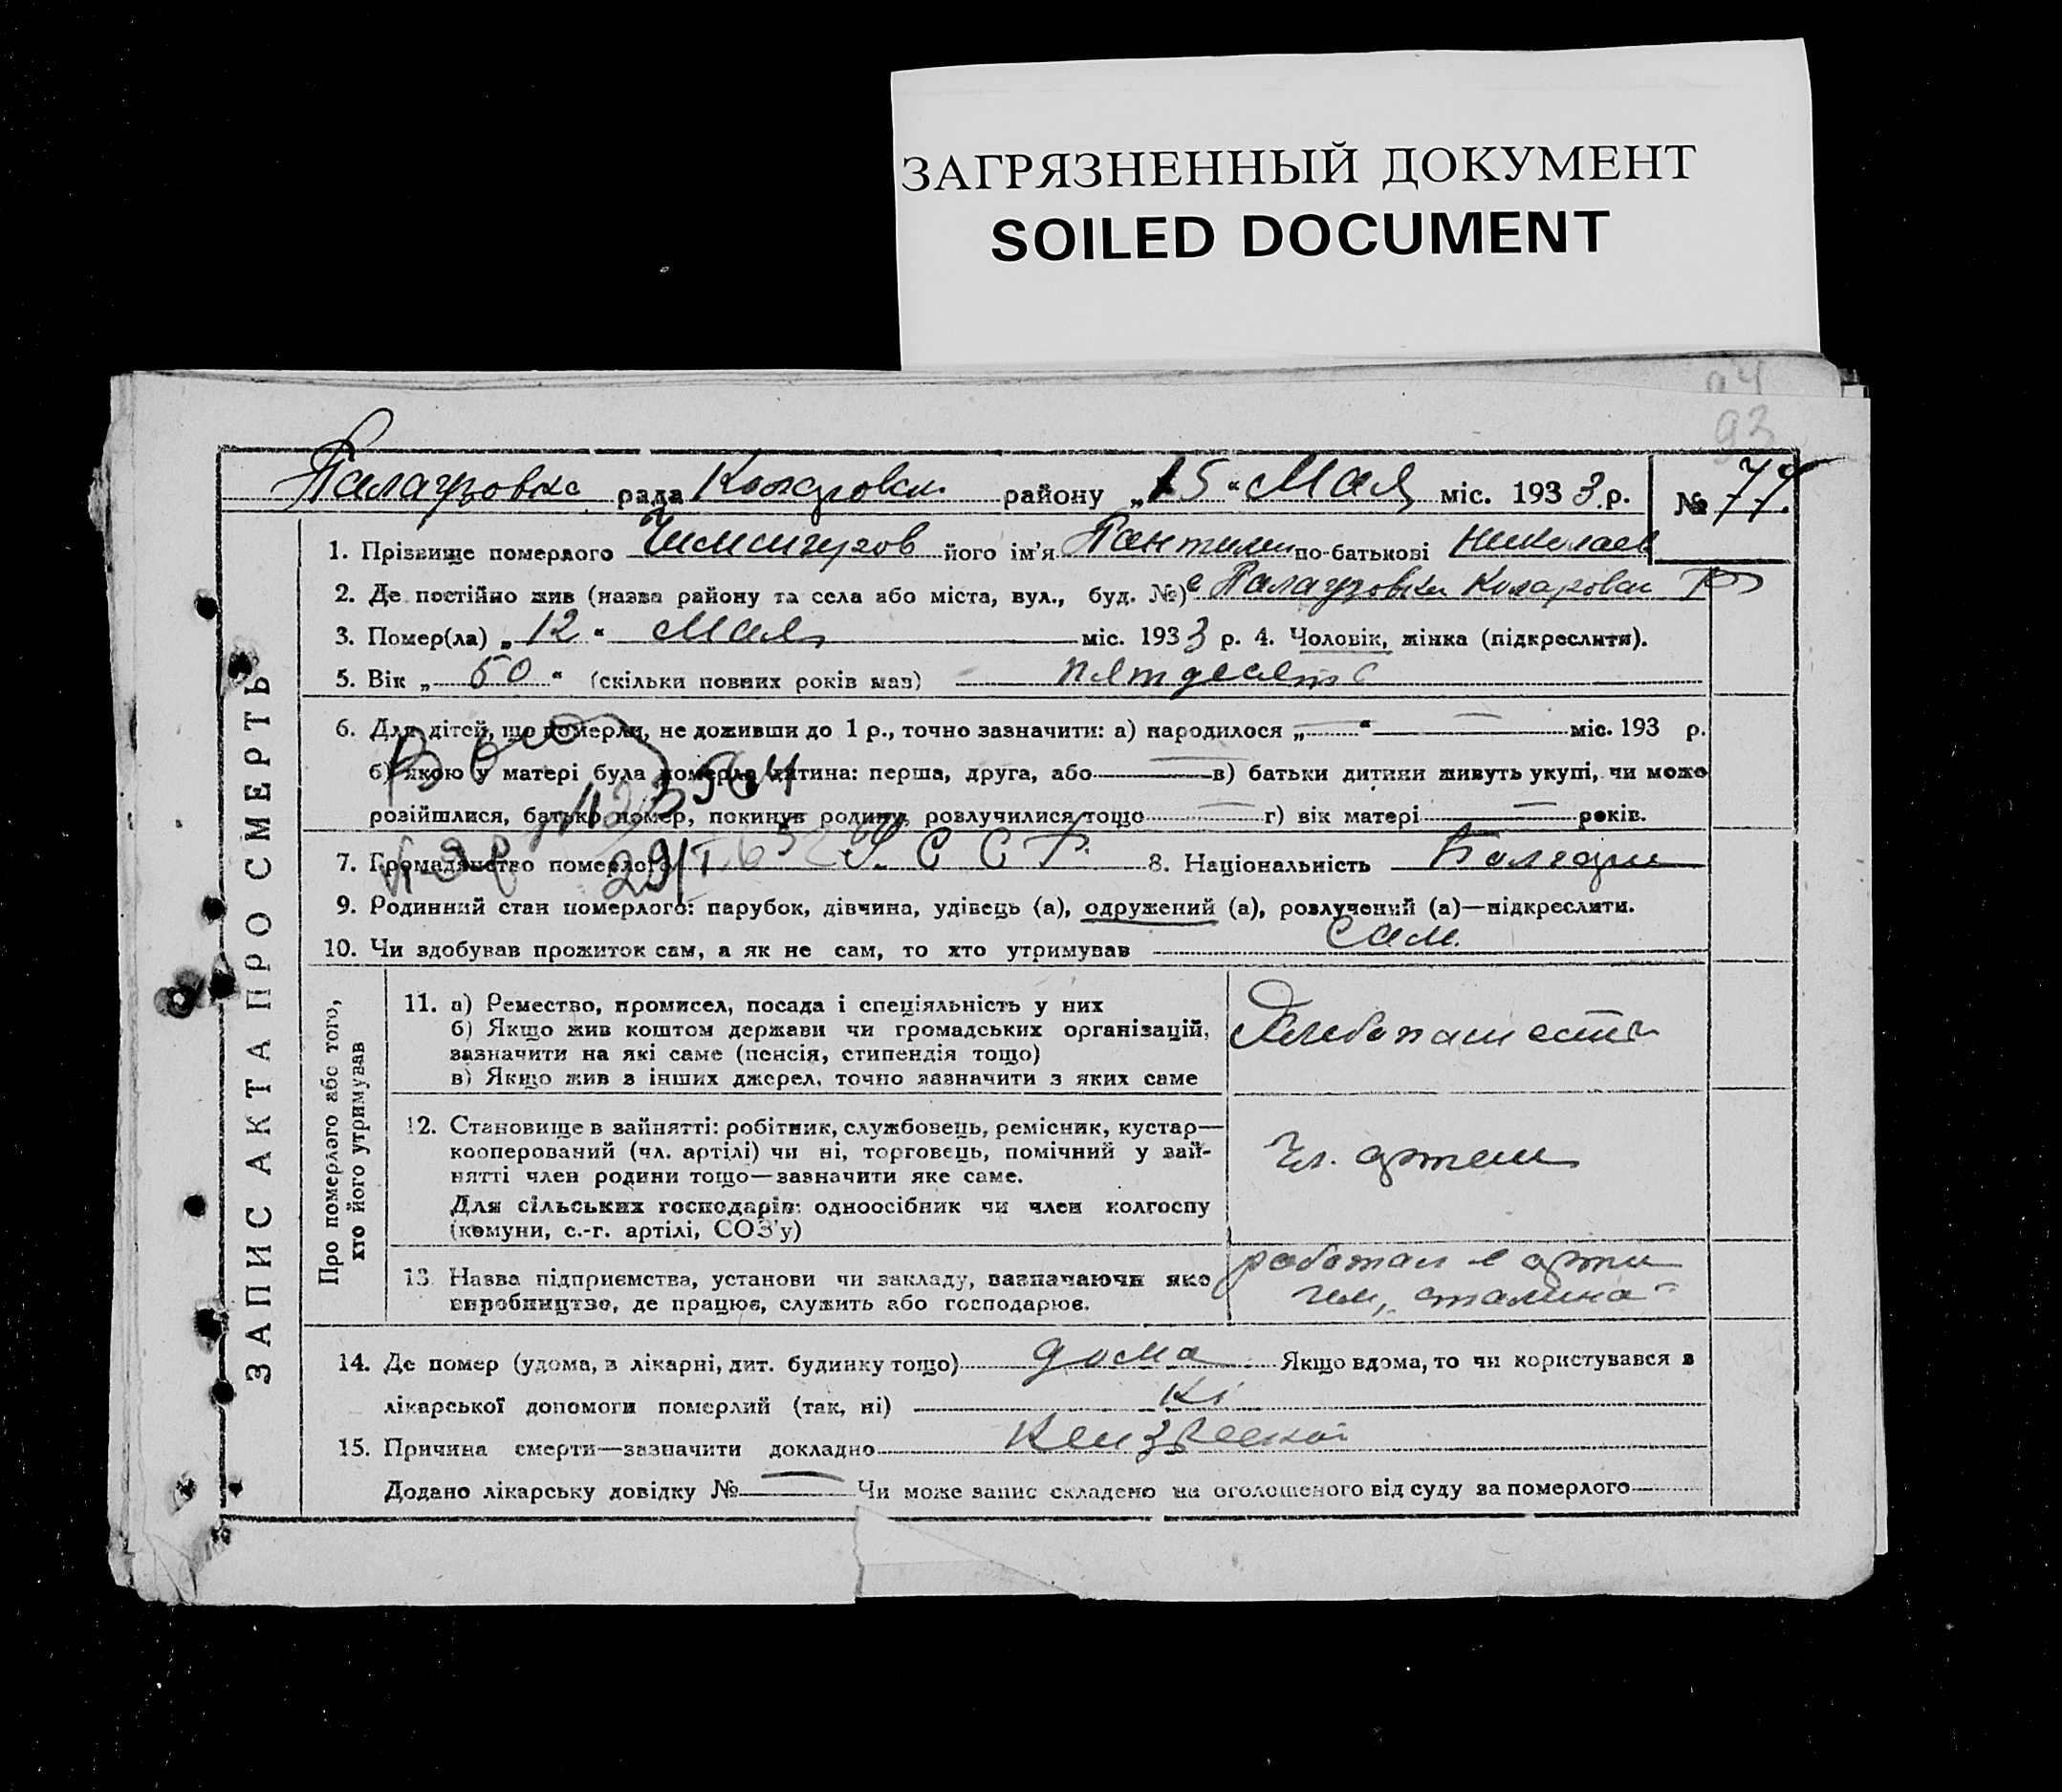 ЗАГРЯЗНЕННЫЙ ДОКУМЕНТ
SOILED DOCUMENT
93
рада района району „15“ Мая міс. 1933 р. № 77
ЗАПИС АКТА ПРО СМЕРТЬ
1. Прізвище померлого його ім'я по-батькові Николаев
2. Де постійно жив (назва району та села або міста, вул., буд. №) с
3. Помер(ла) „12“ Мая міс. 1933 р. 4. Чоловік, жінка (підкреслити).
5. Вік „50“ (скільки повних років мав) пятдесять
6. Для дітей, що померли, не доживши до 1 р., точно зазначити: а) народилося „—“ — міс. 193 р.
б) якою у матері була померла дитина: перша, друга, або — в) батьки дитини живуть укупі, чи може
розійшлися, батько помер, покинув родину, розлучилися тощо — г) вік матері — років.
7. Громадянство померлого У. С С Р. 8. Національність
9. Родинний стан померлого: парубок, дівчина, удівець (а), одружений (а), розлучений (а)—підкреслити.
10. Чи здобував прожиток сам, а як не сам, то хто утримував Сам.
Про померлого або того,
хто його утримував
11. а) Ремество, промисел, посада і спеціяльність у них
б) Якщо жив коштом держави чи громадських організацій,
зазначити на які саме (пенсія, стипендія тощо)
в) Якщо жив з інших джерел, точно зазначити з яких саме
12. Становище в зайнятті: робітник, службовець, ремісник, кустар—
кооперований (чл. артілі) чи ні, торговець, помічний у зай-
нятті член родини тощо—зазначити яке саме.
Для сільських господарів: одноосібник чи член колгоспу
(комуни, с.-г. артілі, СОЗ'у)
Чл. артели
13. Назва підприємства, установи чи закладу, зазначаючи яке
виробництво, де працює, служить або господарює.
работал в арти
сталина“
14. Де помер (удома, в лікарні, дит. будинку тощо) дома Якщо вдома, то чи користувався з
лікарської допомоги померлий (так, ні) Ні
15. Причина смерти—зазначити докладно
Додано лікарську довідку № — Чи може запис складено на оголошеного від суду за померлого